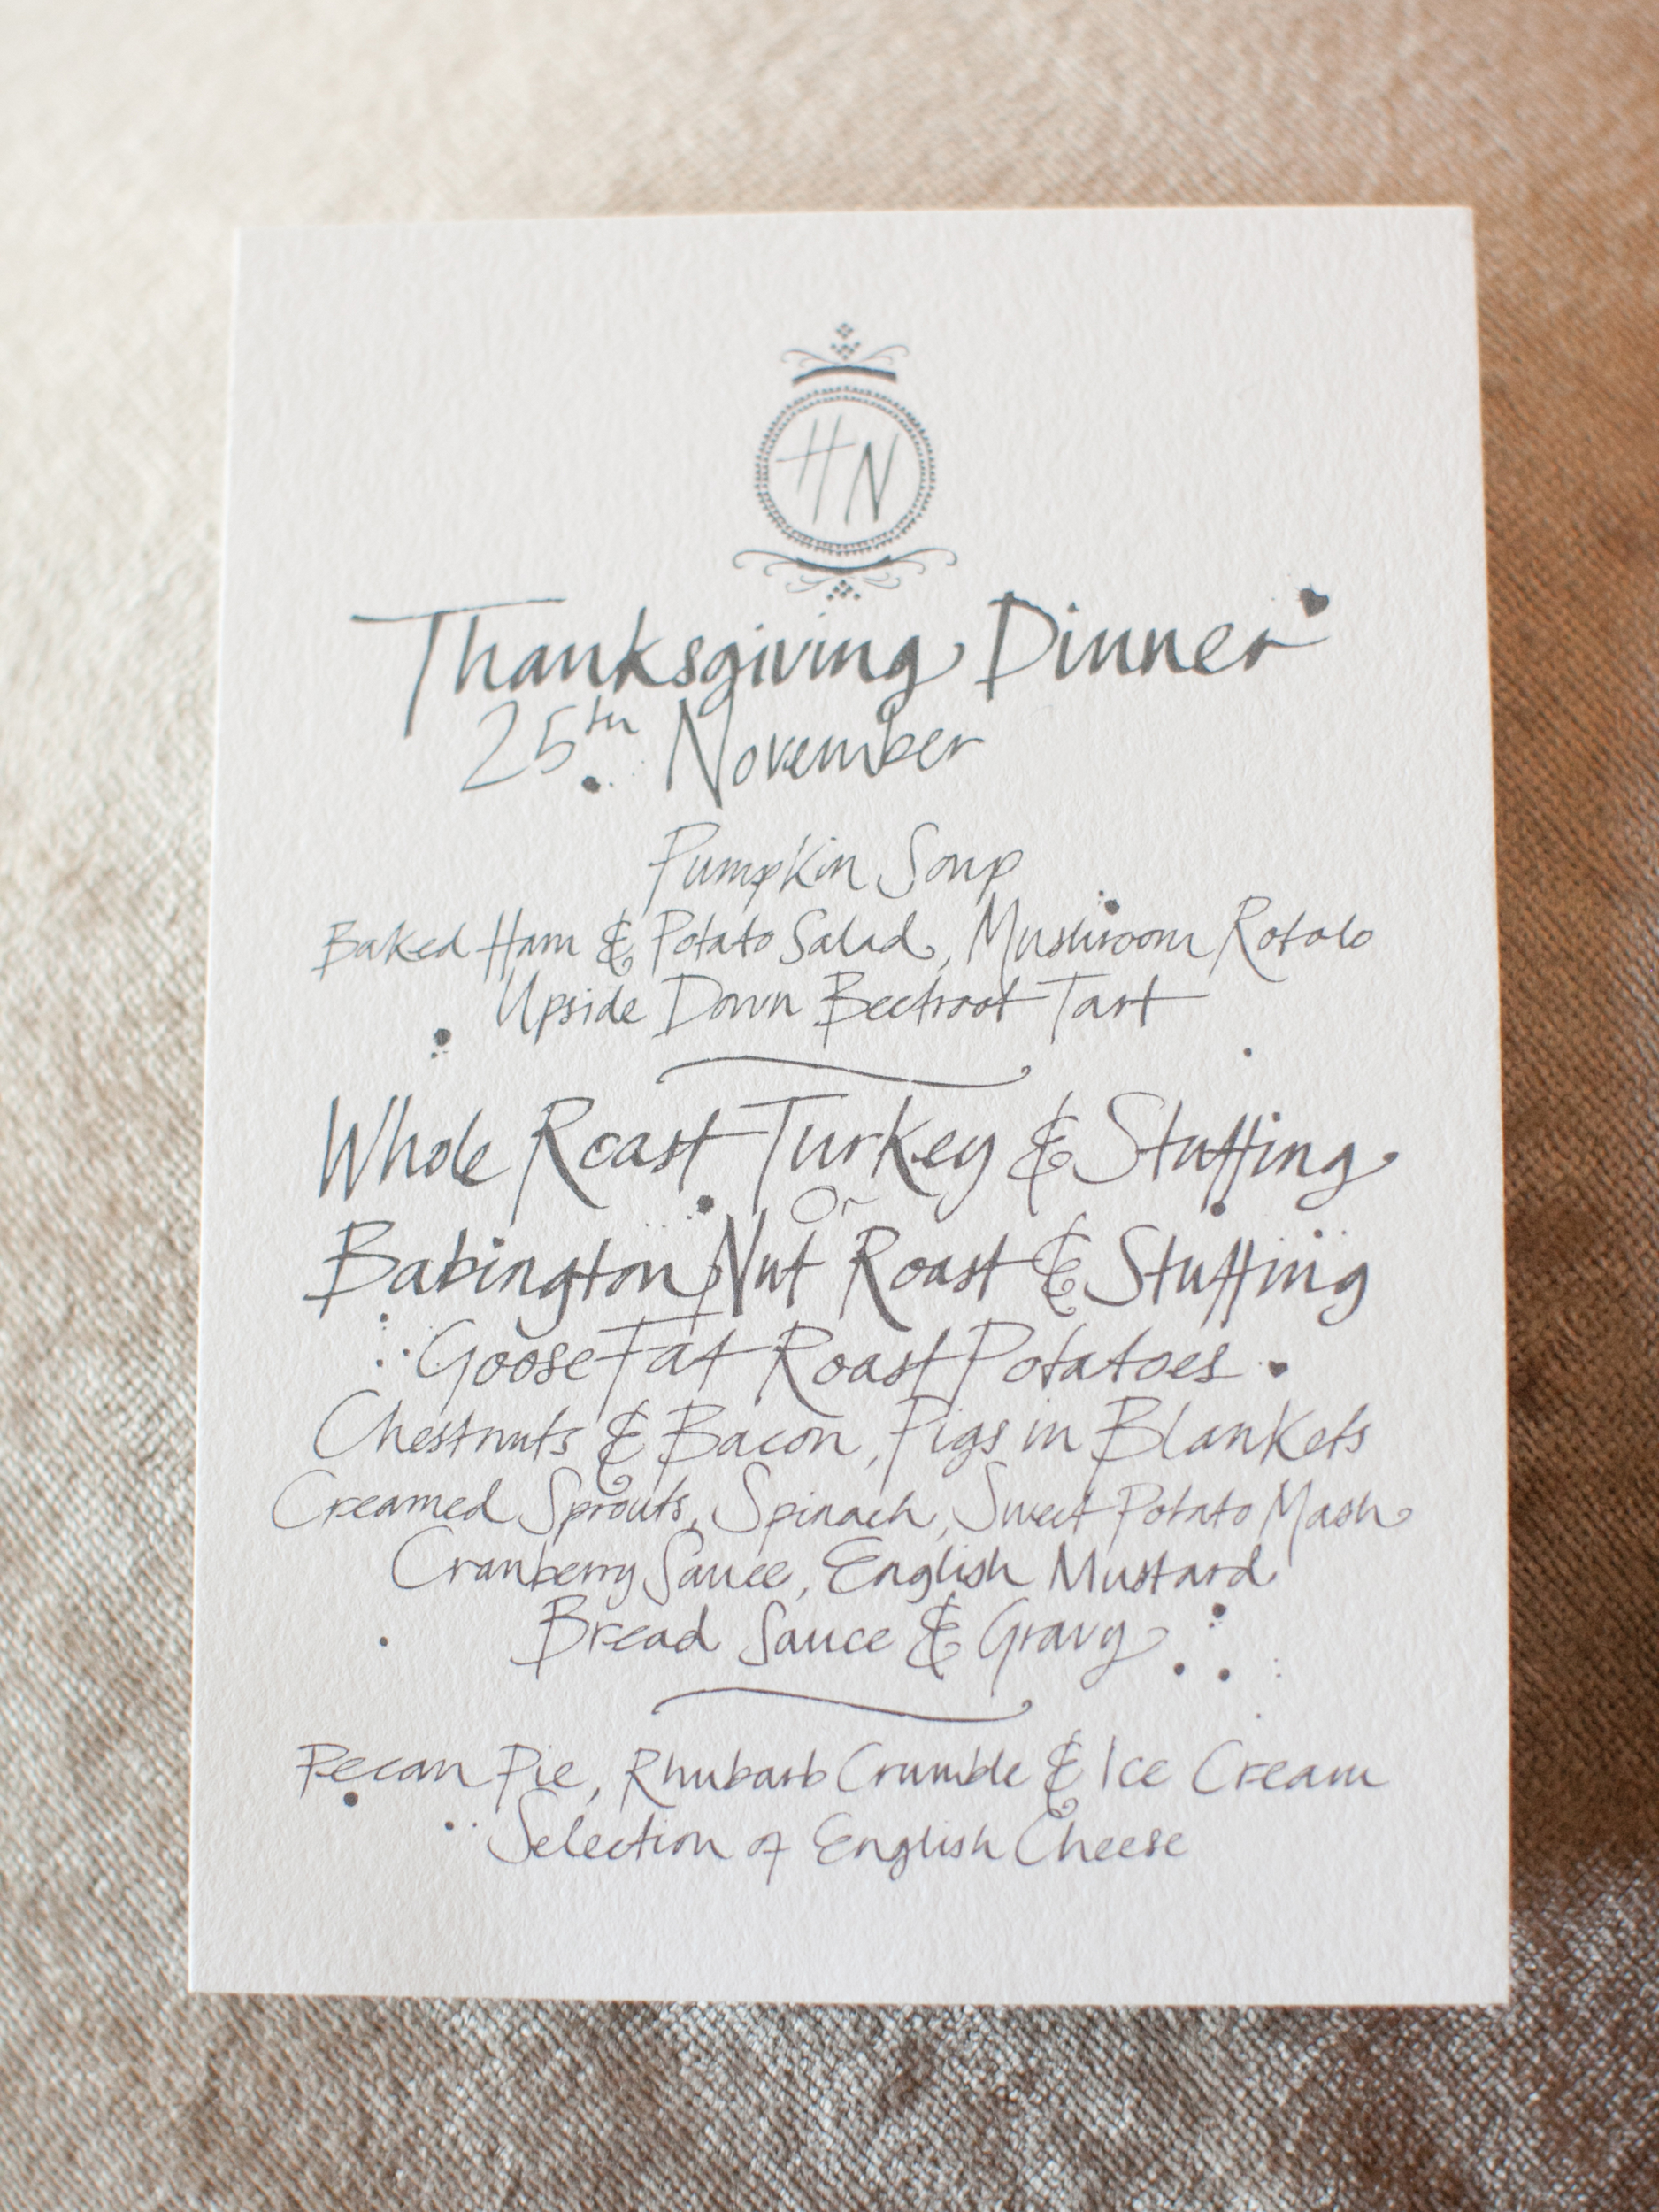 HN
Thanksgiving Dinner
25th November
Pumpkin Soup
Baked Ham & Potato Salad, Mushroom Rotolo
Upside Down Beetroot Tart
Whole Roast Turkey & Stuffing
Or
Babington Nut Roast & Stuffing
Goose Fat Roast Potatoes
Chestnuts & Bacon, Pigs in Blankets
Creamed Sprouts, Spinach, Sweet Potato Mash
Cranberry Sauce, English Mustard
Bread Sauce & Gravy
Pecan Pie, Rhubarb Crumble & Ice Cream
Selection of English Cheese